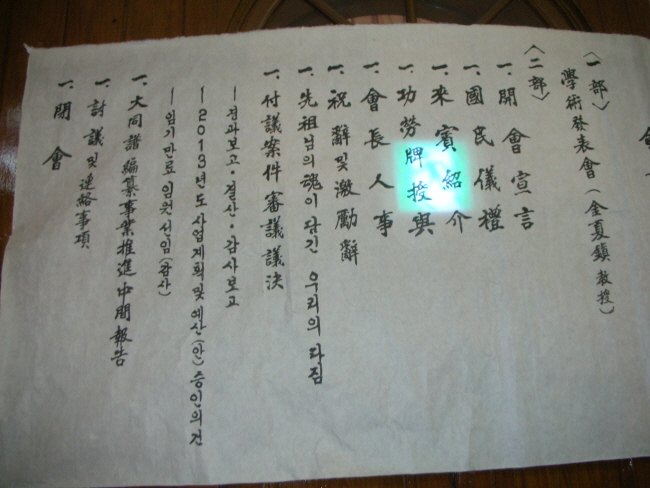 〈一部〉
學術發表會(金夏鎭 敎授)
〈二部〉
一. 開會宣言
一. 國民儀禮
一. 來賓紹介
一. 功勞牌授與
一. 會長人事
一. 祝辭및激勵辭
一. 先祖님의 魂이 담긴 우리의 다짐
一. 付議案件審議議決
— 경과보고·결산·감사보고
— 2013년도 사업계획 및 예산(안) 승인의 건
— 임기만료 임원선임(감사)
一. 大同譜編纂事業推進中間報告
一. 討議및 連絡事項
一. 閉會